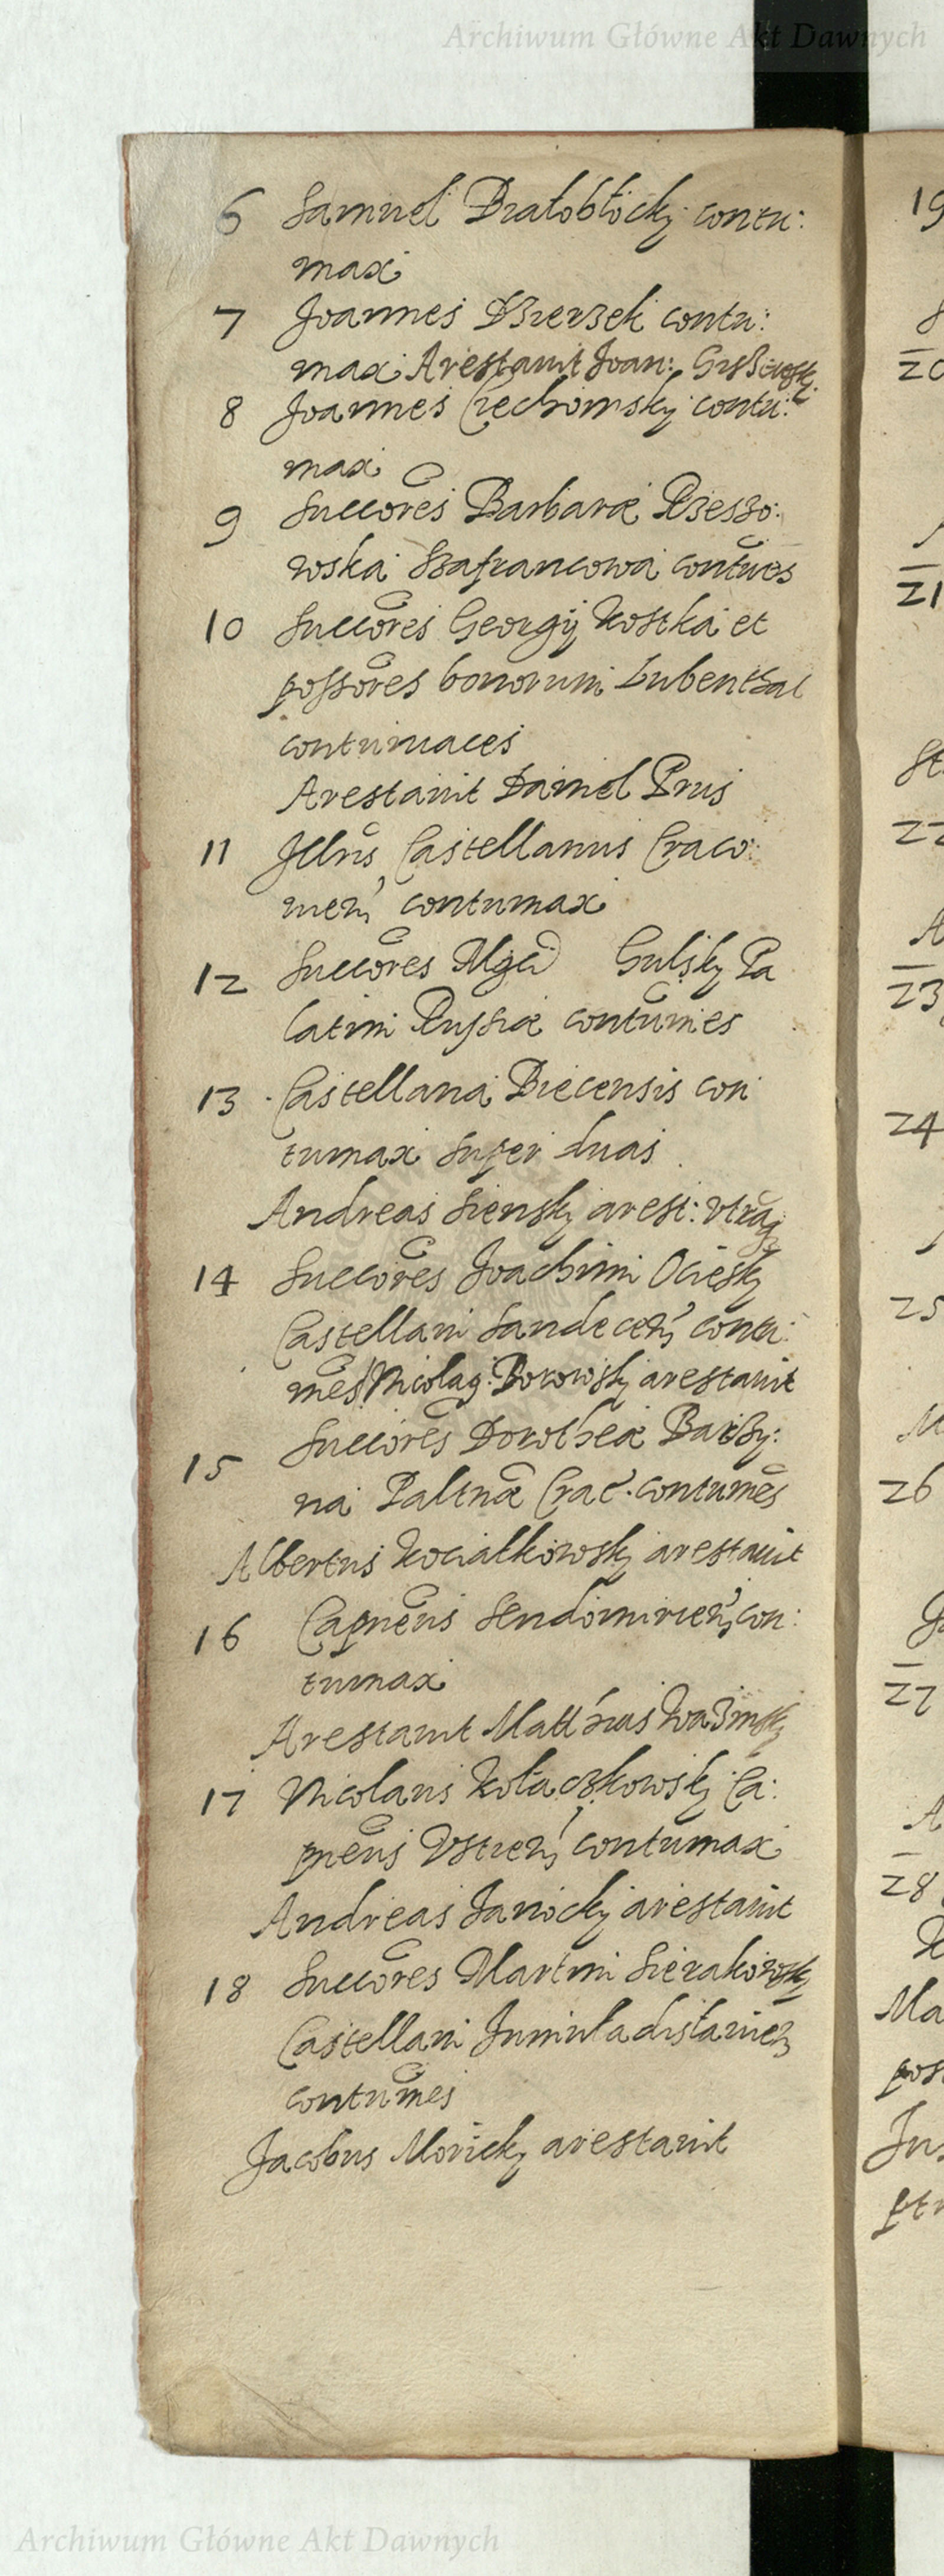 Archiwum Główne Akt Dawnych
6 Samuel Białobłocky contu:
max
7 Joannes Dzierzek contu:
max Arestavit Joan:
8 Joannes Ciechomsky contu:
max
9 Succores Barbaræ Rzeszo:
wska Szafrancowa contues
10 Succores Georgij Kostka et
possores bonorum Lubenthal
contumaces
Arestavit Daniel Prus
11 Jllris Castellanus Craco:
vien contumax
12 Succores Mgci Gulsky Pa
latini Russiæ contumes
13 Castellana Biecensis con
tumax super duas
Andreas Siensky arest: vtraq
14 Succores Joachimi Ociesky
Castellani Sandecen contu:
mes Nicolaq Borowsky arestavit
15 Succores Dorotheæ Barzy:
na Paltnæ Crac. contumes
Albertus Kocialkowsky arestavit
16 Capneus Sendomirien con:
tumax
Arestavit Matthias
17 Nicolaus Kołaczkowsky Ca:
pneus Vstien contumax
Andreas Janicky arestavit
18 Succores Martini Sierakowsky
Castellani Juniuladislavien
contumes
Jacobus Moricky arestavit
19
20
21
St
22
23
24
25
M
26
27
28
Ma
pos
Ju
Archiwum Główne Akt Dawnych